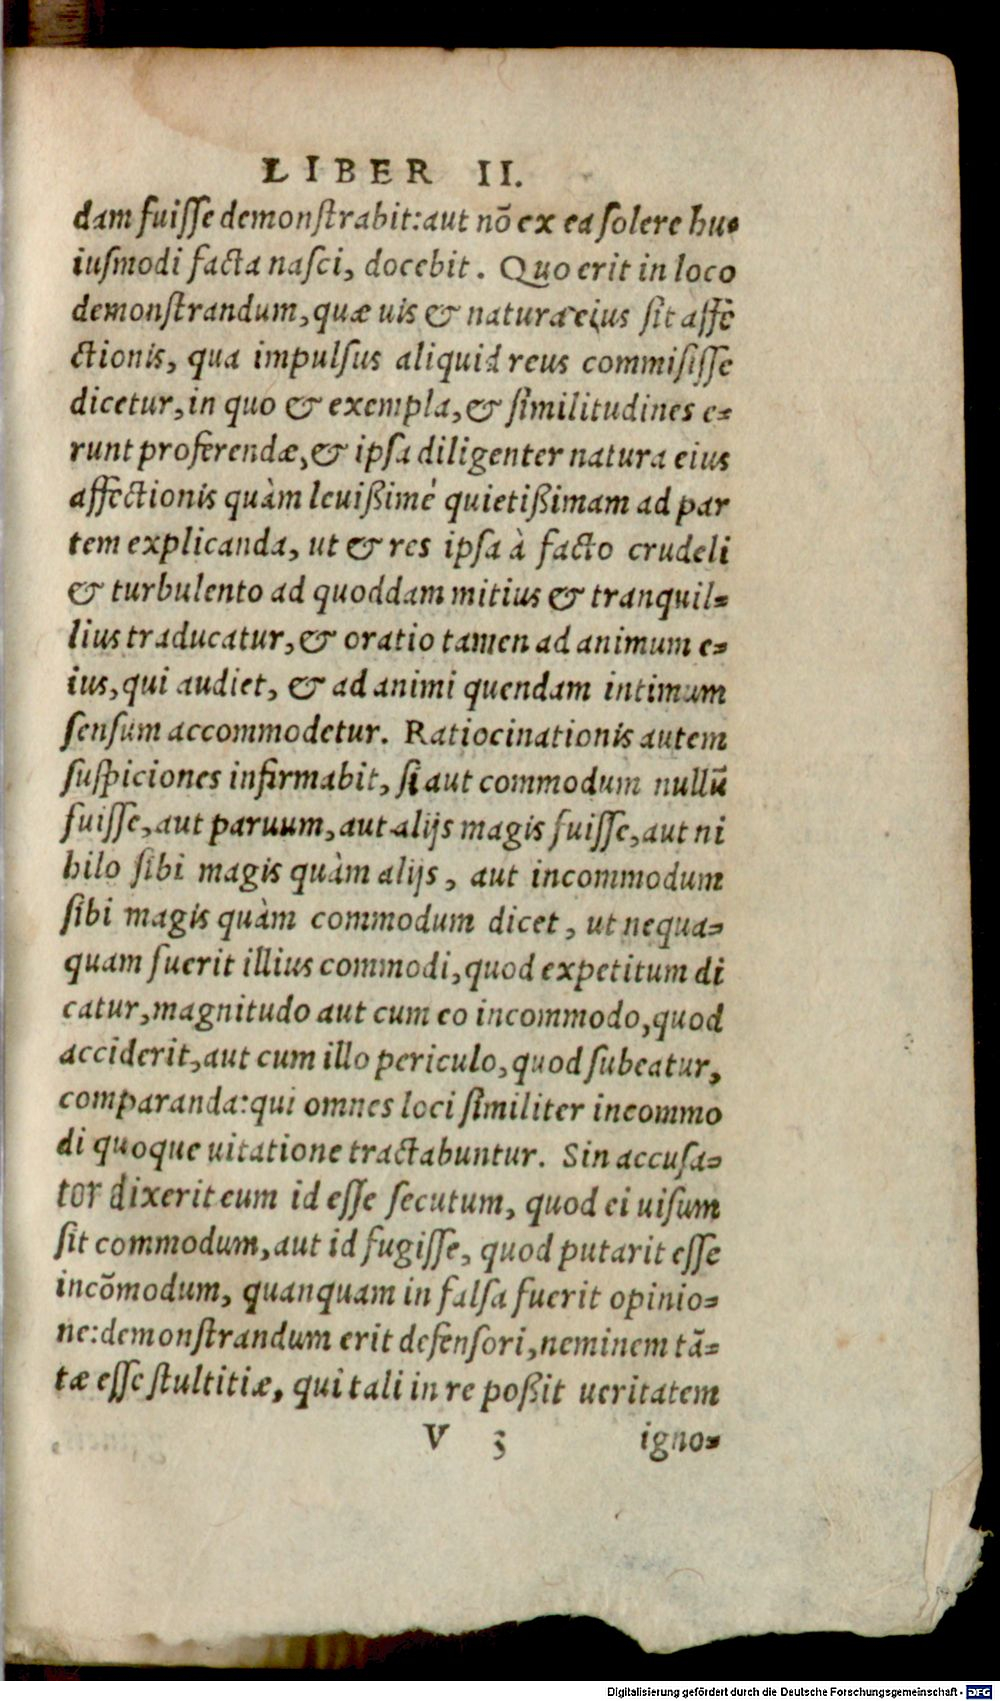 LIBER II.
dam fuiſſe demonſtrabit: aut nõ ex ea ſolere hu⸗
iuſmodi facta naſci, docebit. Quo erit in loco
demonſtrandum, quæ uis & natura eius ſit affe
ctionis, qua impulſus aliquid reus commiſiſſe
dicetur, in quo & exempla, & ſimilitudines e⸗
runt proferendæ, & ipſa diligenter natura eius
affectionis quàm leuißimé quietißimam ad par
tem explicanda, ut & res ipſa à facto crudeli
& turbulento ad quoddam mitius & tranquil⸗
lius traducatur, & oratio tamen ad animum e⸗
ius, qui audiet, & ad animi quendam intimum
ſenſum accommodetur. Ratiocinationis autem
ſuſpiciones infirmabit, ſi aut commodum nullũ
fuiſſe, aut paruum, aut alijs magis fuiſſe, aut ni
hilo ſibi magis quàm alijs, aut incommodum
ſibi magis quàm commodum dicet, ut nequa⸗
quam fuerit illius commodi, quod expetitum di
catur, magnitudo aut cum eo incommodo, quod
acciderit, aut cum illo periculo, quod ſubeatur,
comparanda: qui omnes loci ſimiliter incommo
di quoque uitatione tractabuntur. Sin accuſa⸗
tor dixerit eum id eſſe ſecutum, quod ei uiſum
ſit commodum, aut id fugiſſe, quod putarit eſſe
incõmodum, quanquam in falſa fuerit opinio⸗
ne: demonſtrandum erit defenſori, neminem tã⸗
tæ eſſe ſtultitiæ, qui tali in re poßit ueritatem
V 3 igno⸗
Digitalisierung gefördert durch die Deutsche Forschungsgemeinschaft - DFG